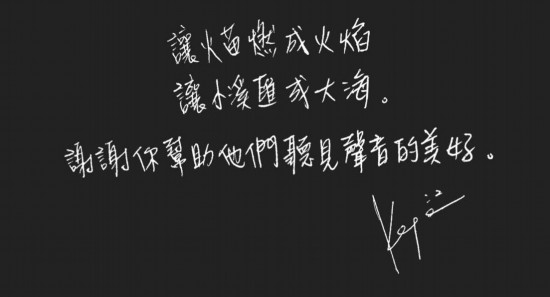 讓火苗燃成火焰
讓小溪匯成大海。
謝謝你幫助他們聽見聲音的美好。